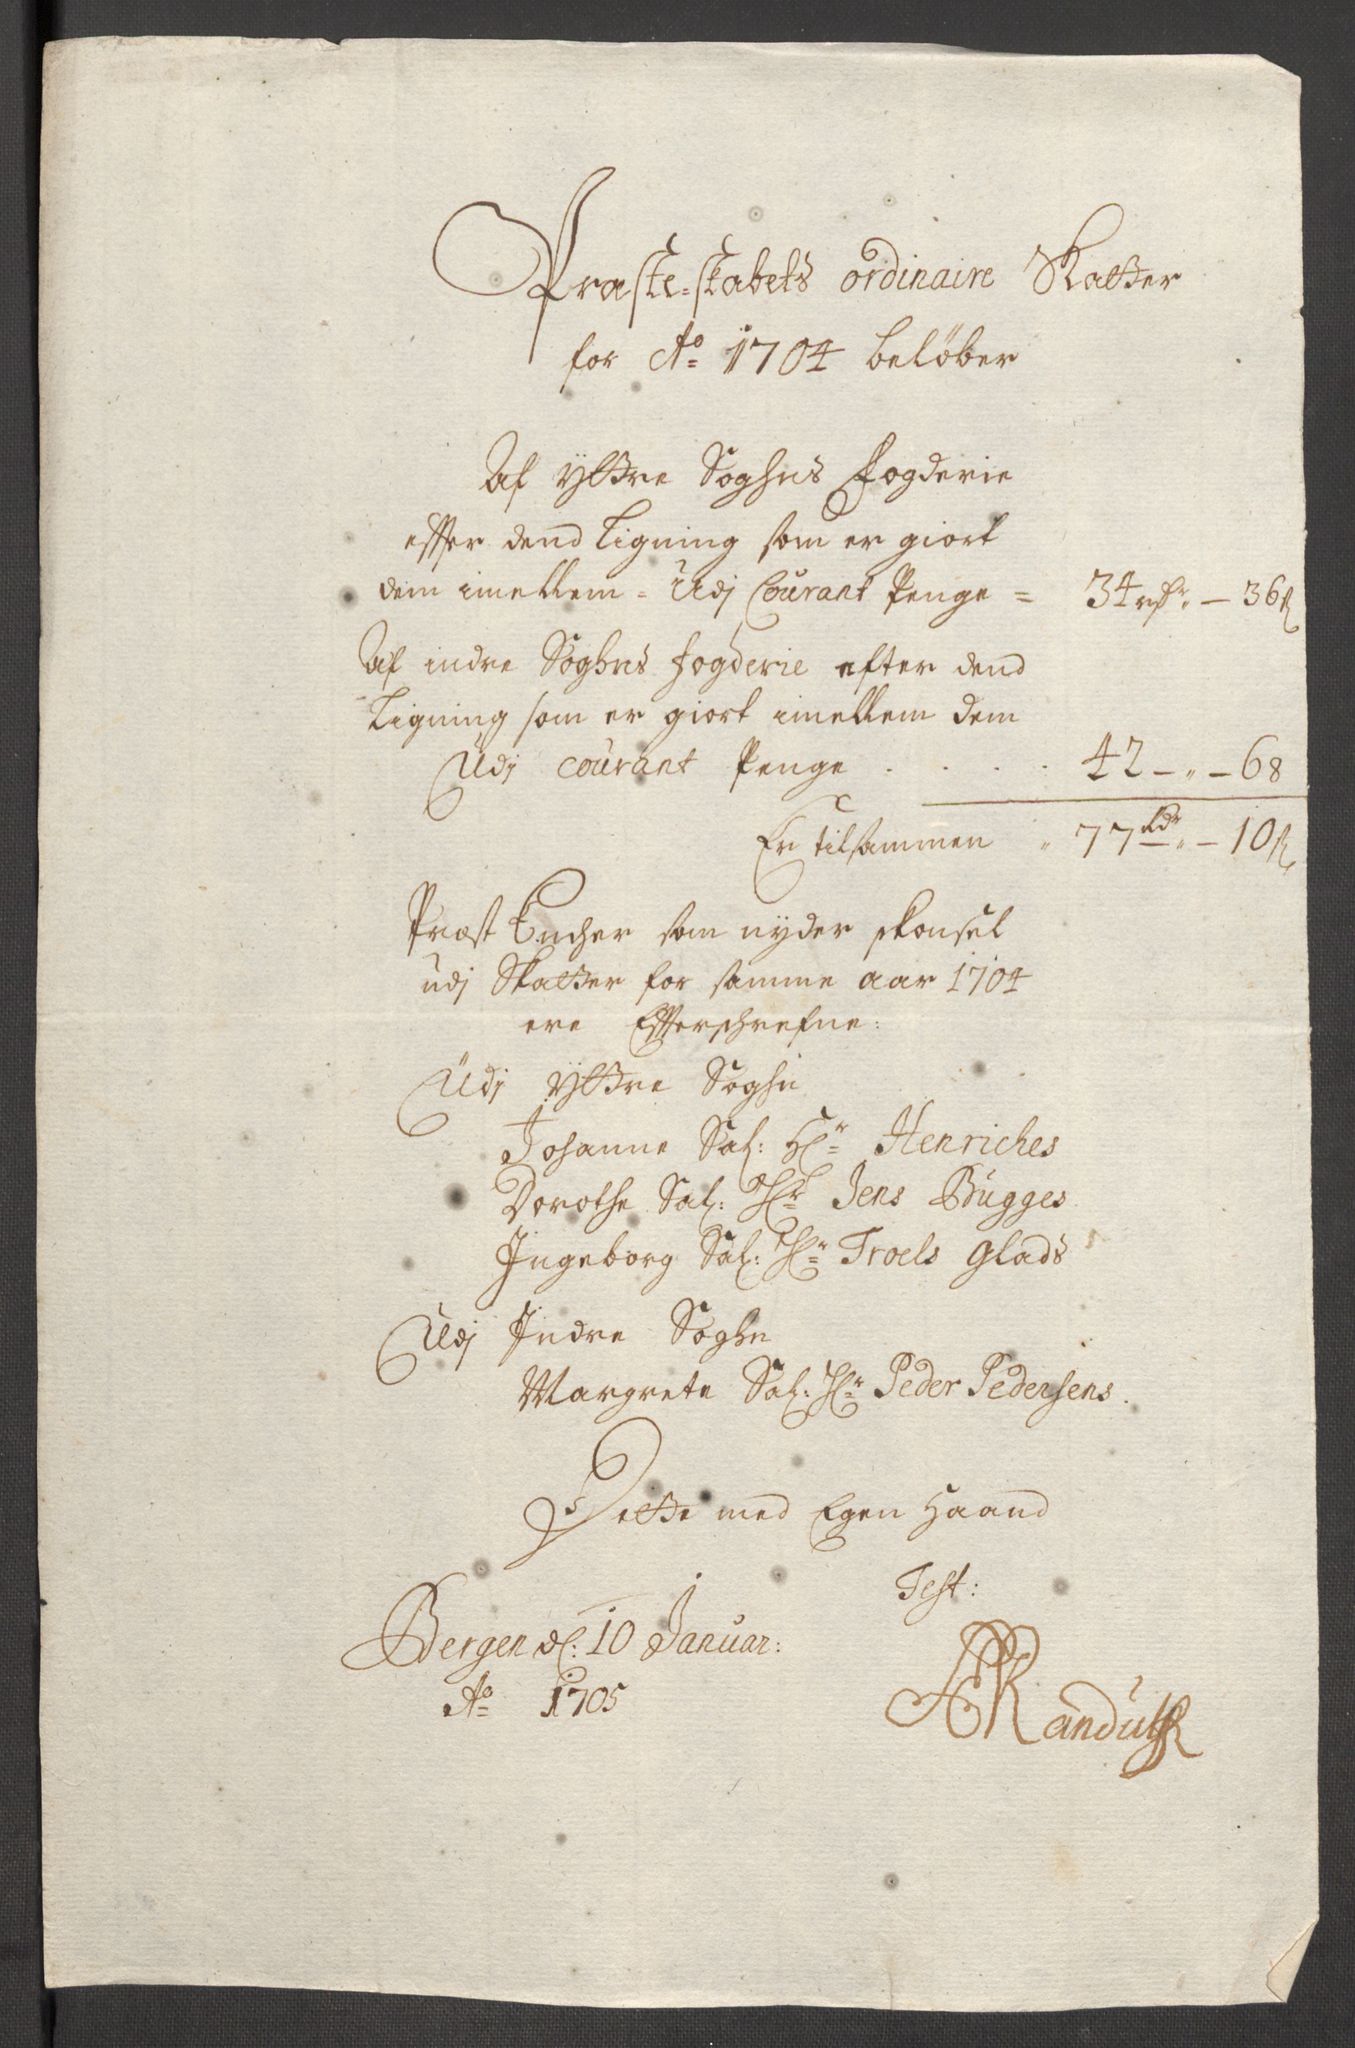 Præste-skabets ordinaire Skatter
for Ao 1704 beløber
Af Yttre Soghns fogderie
effter dend Ligning som er giort
dem imellem - Udj Courant Penge = 34 rdr „ — 36 ß
Af indre Soghns fogderie efter dend
Ligning som er giort imellem dem
Udj courant Penge . . . . 42 — „ — 68
Er tilsammen „ 77 Rdr „ — 10 ß
Præst Encher som nyder skonsel
udj Skatter for samme aar 1704
ere Effterschrefne:
Udj Yttre Soghn
Johanne Sal: Hr Henriches
Dorothe Sal: Hr Jens Bugges
Ingeborg Sal: Hr Troels Glads
Udj Indre Soghn
Margrete Sal: Hr Peder Pedersens.
Dette med Egen Haand
Test:
Bergen d: 10 Januar:
Ao 1705
Randulff